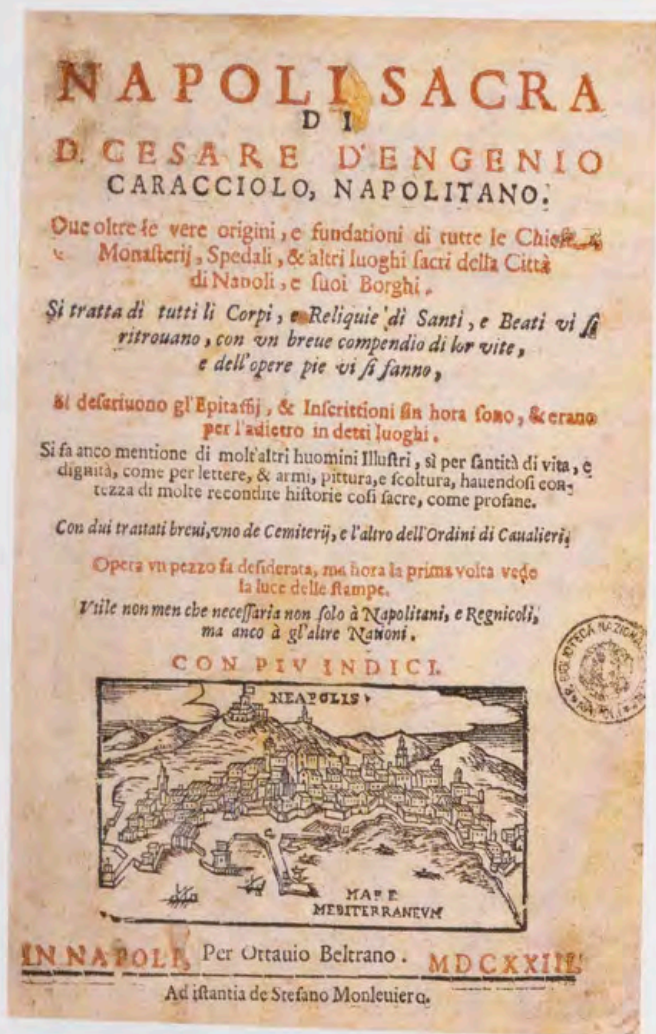 NAPOLI SACRA
DI
D. CESARE D'ENGENIO
CARACCIOLO, NAPOLITANO.
Oue oltre le vere origini, e fundationi di tutte le Chiese,
Monasterij, Spedali, & altri luoghi sacri della Città
di Napoli, e suoi Borghi.
Si tratta di tutti li Corpi, e Reliquie di Santi, e Beati vi si
ritrouano, con vn breue compendio di lor vite,
e dell'opere pie vi si fanno,
Si descriuono gl'Epitaffij, & Inscrittioni sin hora sono, & erano
per l'adietro in detti luoghi.
Si fa anco mentione di molt'altri huomini Illustri, sì per santità di vita, e
dignità, come per lettere, & armi, pittura, e scoltura, hauendosi con-
tezza di molte recondite historie così sacre, come profane.
Con dui trattati breui, vno de Cemiterij, e l'altro dell'Ordini di Caualieri,
Opera vn pezzo fa desiderata, ma hora la prima volta vede
la luce delle stampe.
Vtile non men che necessaria non solo à Napolitani, e Regnicoli,
ma anco à gl'altre Nationi.
CON PIV INDICI.
NEAPOLIS
MARE
MEDITERRANEVM
BIBLIOTECA NAZIONALE
IN NAPOLI, Per Ottauio Beltrano. MDCXXIII.
Ad istantia de Stefano Monleuiero.